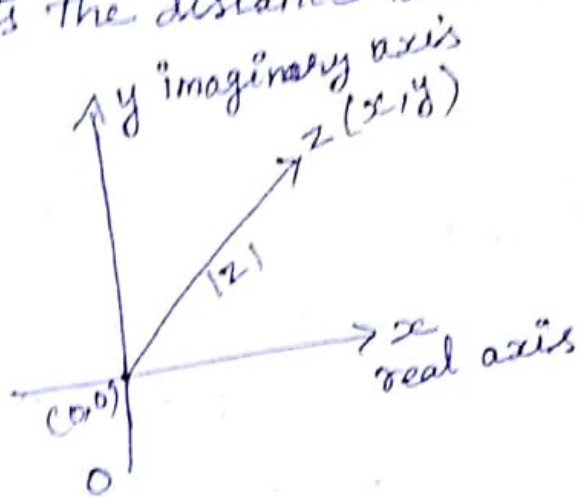 The distance
y imaginary axis
z (x,y)
|z|
x
real axis
(0,0)
O